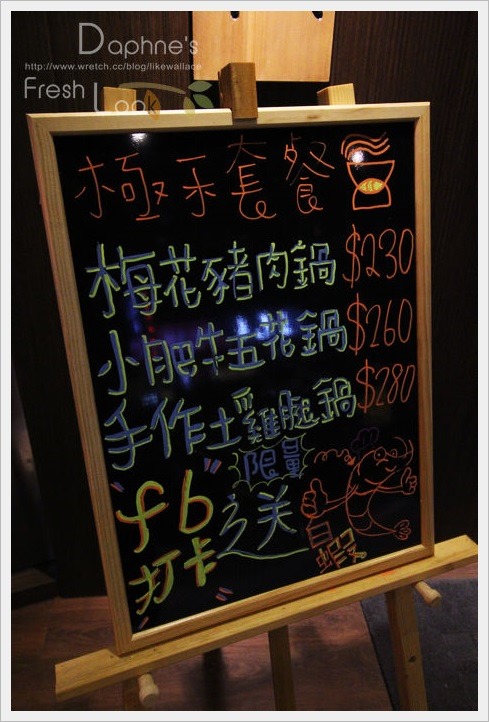 Daphne's
http://www.wretch.cc/blog/likewallace
Fresh Look
極禾套餐
梅花豬肉鍋 $230
小肥牛五花鍋 $260
手作土雞腿鍋 $280
限量
"fb"
打卡之送
白蝦